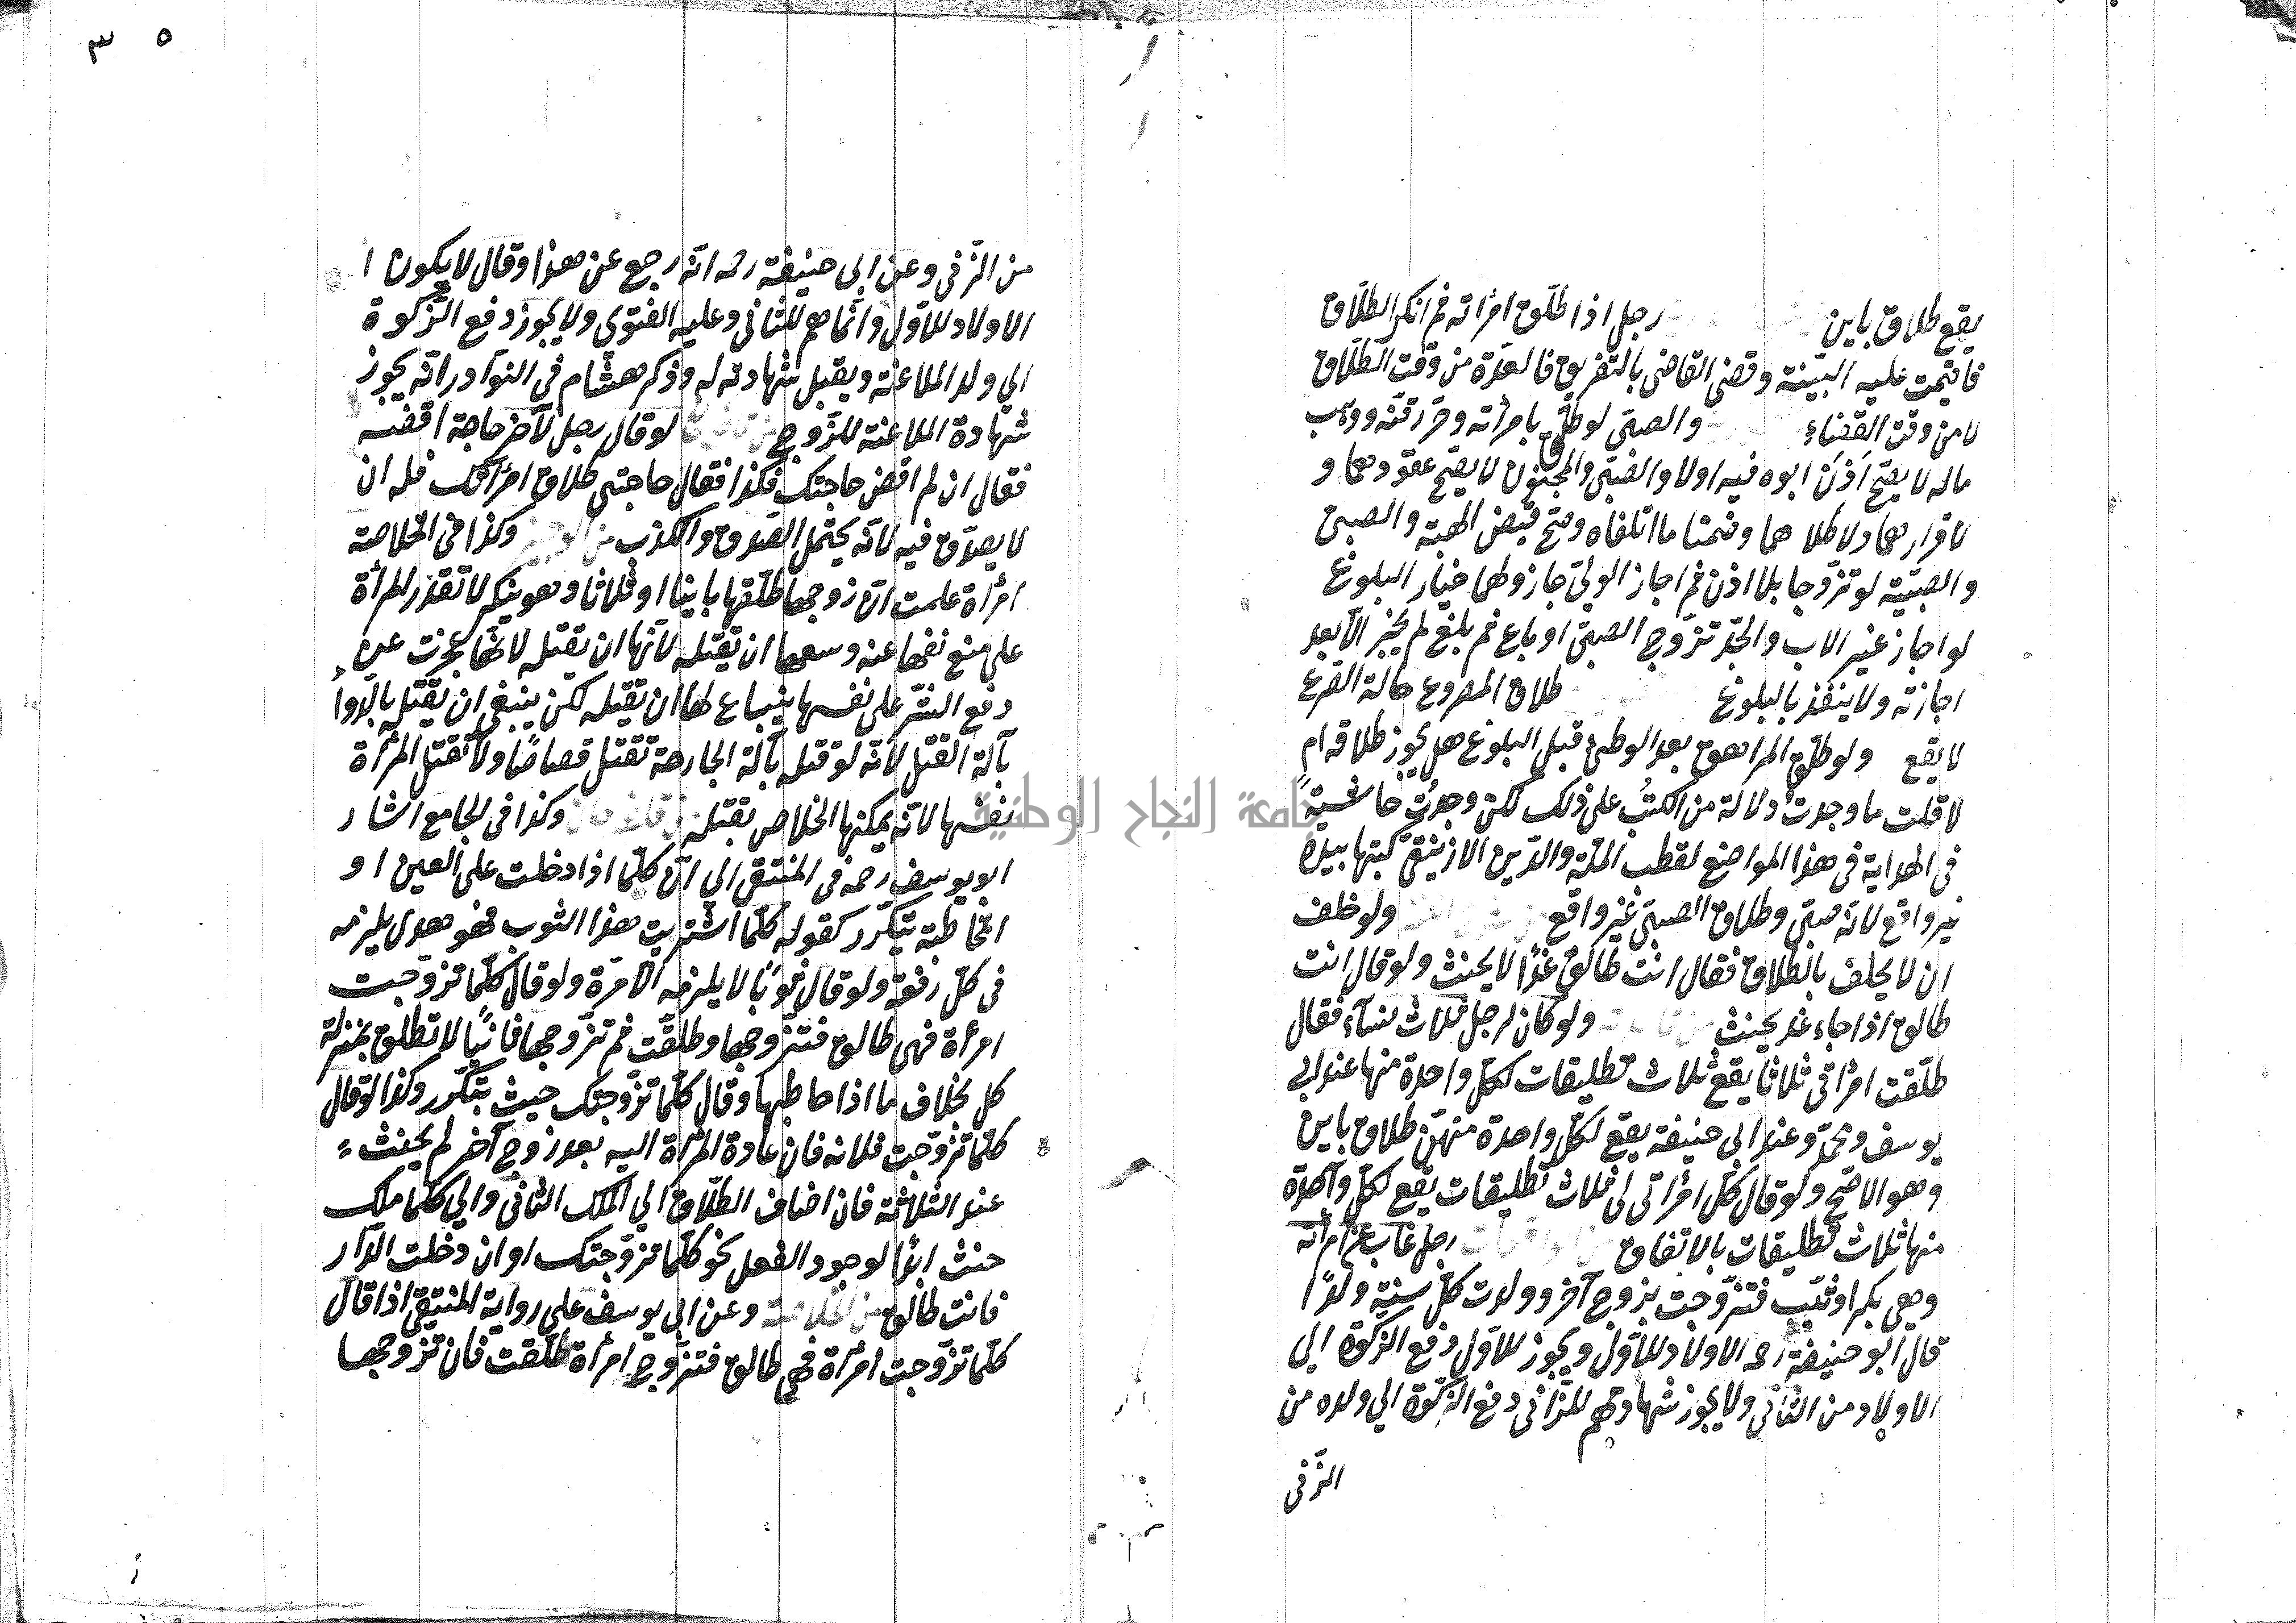 يقع طلاق باين رجل اذا طلّق امرأته ثم انكر الطلاق
فاقيمت عليه البيّنة وقضى القاضى بالتفريق فالعدّة من وقت الطلاق
لا من وقت القضاء والصبىّ لو طلّق بامرأته وحرّر قنّه ووهب
ماله لا يصحّ اذن ابوه فيه اولا والصبىّ والمجنون لا يصحّ عقودهما و
لا قرارهما ولا طلاهما وضمنا ما اتلفاه وصحّ قبض الهبة والصبىّ
والصبيّة لو تزوّجا بلا اذن ثم اجاز الولىّ جاز ولهما خيار البلوغ
لو اجاز غير الاب والجدّ تزوّج الصبىّ او باع ثم بلغ لم يجز الا بعد
اجازته ولا ينفذ بالبلوغ طلاق المصروع حالة الصرع
لا يقع ولو طلّق المراهق بعد الوطئ قبل البلوغ هل يجوز طلاقه ام
لا قلت ما وجدتُ دلالة من الكتُب على ذلك لكن وجدتُ حاشيةً
فى الهداية فى هذا المواضع لقطب الملّة والدّين الازنيقى كتبها بيده
غير واقع لانه صبىّ وطلاق الصبىّ غير واقع ولو حلف
ان لا يحلف بالطلاق فقال انت طالق غدًا لا يحنث ولو قال انت
طالق اذا جاء غد يحنث ولو كان لرجل ثلاث نساء فقال
طلّقت امرأتى ثلاثًا يقع ثلاث تطليقات لكلّ واحدة منها عند ابى
يوسف ومحمّد وعند ابى حنيفة يقع لكلّ واحدة منهنّ طلاق باين
وهو الاصحّ ولو قال كلّ امرأتى لى ثلاث تطليقات يقع لكلّ واحدة
منها ثلاث تطليقات بالاتفاق رجل غاب عن امرأته
وهى بكر او ثيّب فتزوّجت بزوج آخر وولدت كلّ سنة ولدًا
قال ابو حنيفة رحمه الاولاد للاوّل ويجوز للاوّل دفع الزكوة الى
الاولاد من الثانى ولا يجوز شهادتهم للزّانى دفع الزكوة الى ولده من
الزّنى
٣٥
من الزّنى وعن ابى حنيفة رحمه انّه رجع عن هذا وقال لا يكون ا
الاولاد للاوّل وانّما هم للثانى وعليه الفتوى ولا يجوز دفع الزكوة
الى ولد الملاعنة ويقبل شهادته له وذكر هشام فى النوادر انّه يجوز
شهادة الملاعنة للزّوج لو قال رجل لآخر حاجة اقضه
فقال ان لم اقض حاجتك فكذا فقال حاجتى طلاق امرأتك فله ان
لا يصدّق فيه لانّه يحتمل الصدق والكذب وكذا فى الخلاصة
امرأة علمت انّ زوجها طلّقها باينا او ثلاثا وهو ينكر لا تقدر المرأة
على منع نفسها عنه وسعها ان تقتله لانها ان تقتله لانّها عجزت عن
دفع الشرّ على نفسها يباع لها ان تقتله لكن ينبغى ان تقتله بالدّواء
بآلة القتل لانّه لو قتله بآلة الجارحة تقتل قصاصًا ولا تقتل المرأة
نفسها لانّه يمكنها الخلاص بقتله وكذا فى الجامع اشار
ابو يوسف رحمه فى المنتقى الى انّ كلّما اذا دخلت على العين او
المخاطبة يتكرّر كقوله كلّما اشتريت هذا الثوب فهو هدى يلزمه
فى كلّ دفعة ولو قال ثوبًا لا يلزمه الا مرّة ولو قال كلّما تزوّجت
امرأة فهى طالق فتزوّجها وطلّقت ثم تزوّجها ثانيًا لا تطلق بمنزلة
كل بخلاف ما اذا خاطبها وقال كلّما تزوّجتك حيث يتكرّر وكذا لو قال
كلّما تزوّجت فلانه فان عادة المرأة اليه بعد زوج آخر لم يحنث
عند الثلاثة فان اضاف الطلاق الى الملك الثانى والى كلّما ملك
حنث ابدًا لوجود الفعل نحو كلّما تزوّجتك او ان دخلت الدّار
فانت طالق من الخلاصة وعن ابى يوسف على رواية المنتقى اذا قال
كلّما تزوّجت امرأة فهى طالق فتزوّج امرأة طلّقت فان تزوجها
جامعة النجاح الوطنية